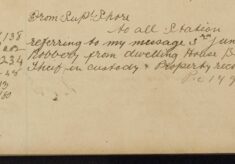 From Supt. Shore
To all Station
referring to my message 3rd Jun
Robbery from dwelling House B
Theif in custody & Property rec
P.C 149
138
234